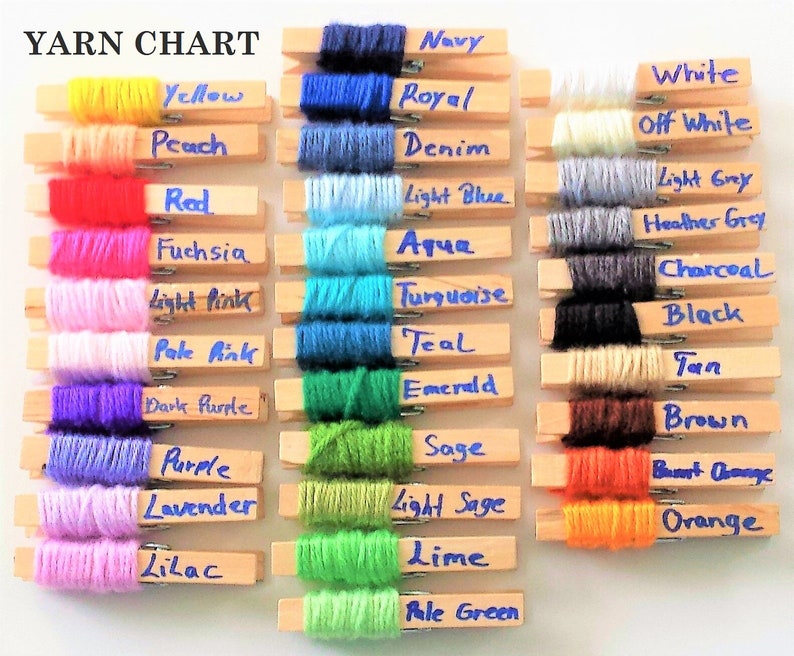 YARN CHART
Yellow
Peach
Red
Fuchsia
Light Pink
Pale Pink
Dark Purple
Purple
Lavender
Lilac
Navy
Royal
Denim
Light Blue
Aqua
Turquoise
Teal
Emerald
Sage
Light Sage
Lime
Pale Green
White
Off White
Light Grey
Heather Grey
Charcoal
Black
Tan
Brown
Burnt Orange
Orange